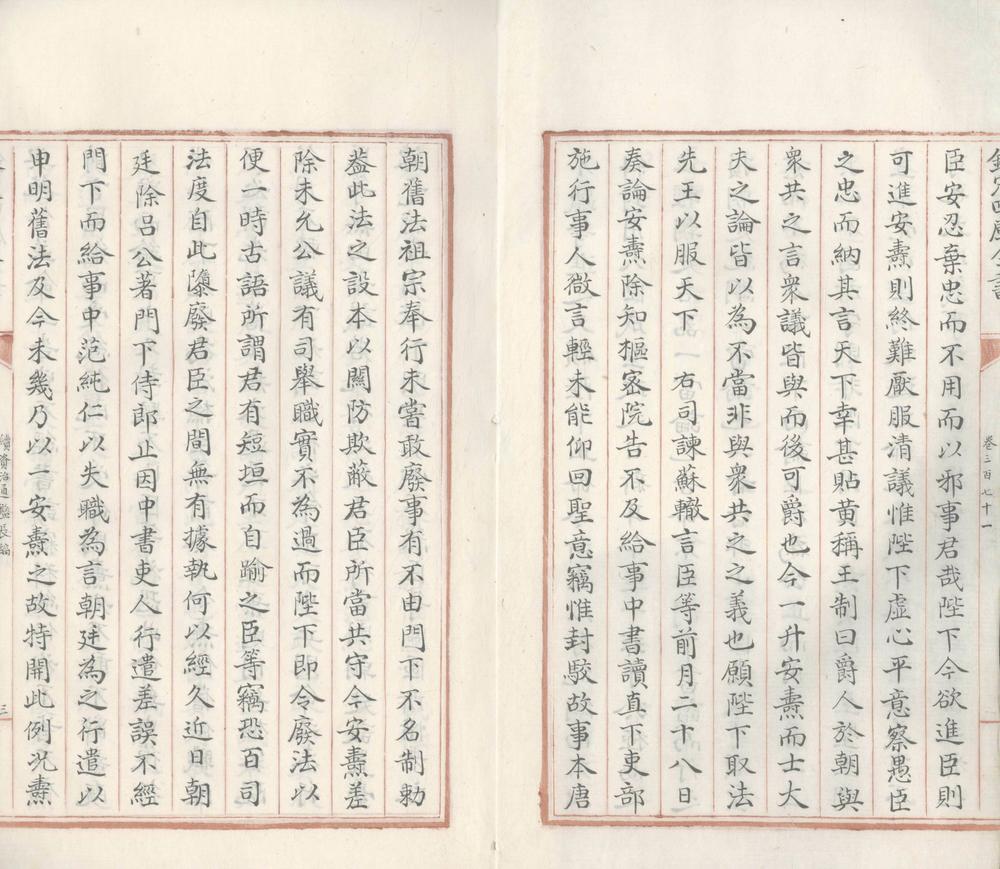 臣安忍棄忠而不用而以邪事君哉陛下今欲進臣則
可進安燾則終難厭服清議惟陛下虛心平意察愚臣
之忠而納其言天下幸甚貼黄稱王制曰爵人於朝與
衆共之言衆議皆與而後可爵也今一升安燾而士大
夫之論皆以為不當非與衆共之之義也願陛下取法
先王以服天下　右司諫蘇轍言臣等前月二十八日
奏論安燾除知樞宻院告不及給事中書讀真下吏部
施行事人微言輕未能仰回聖意竊惟封駮故事本唐
卷三百七十一
朝舊法祖宗奉行未嘗敢廢事有不由門下不名制勅
葢此法之設本以關防欺蔽君臣所當共守今安燾差
除未允公議有司舉職實不為過而陛下即令廢法以
便一時古語所謂君有短垣而自踰之臣等竊恐百司
法度自此隳廢君臣之間無有據執何以經久近日朝
廷除吕公著門下侍郎止因中書吏人行遣差誤不經
門下而給事中范純仁以失職為言朝廷為之行遣以
申明舊法及今未幾乃以一安燾之故特開此例况燾
續資治通鑑長編
三